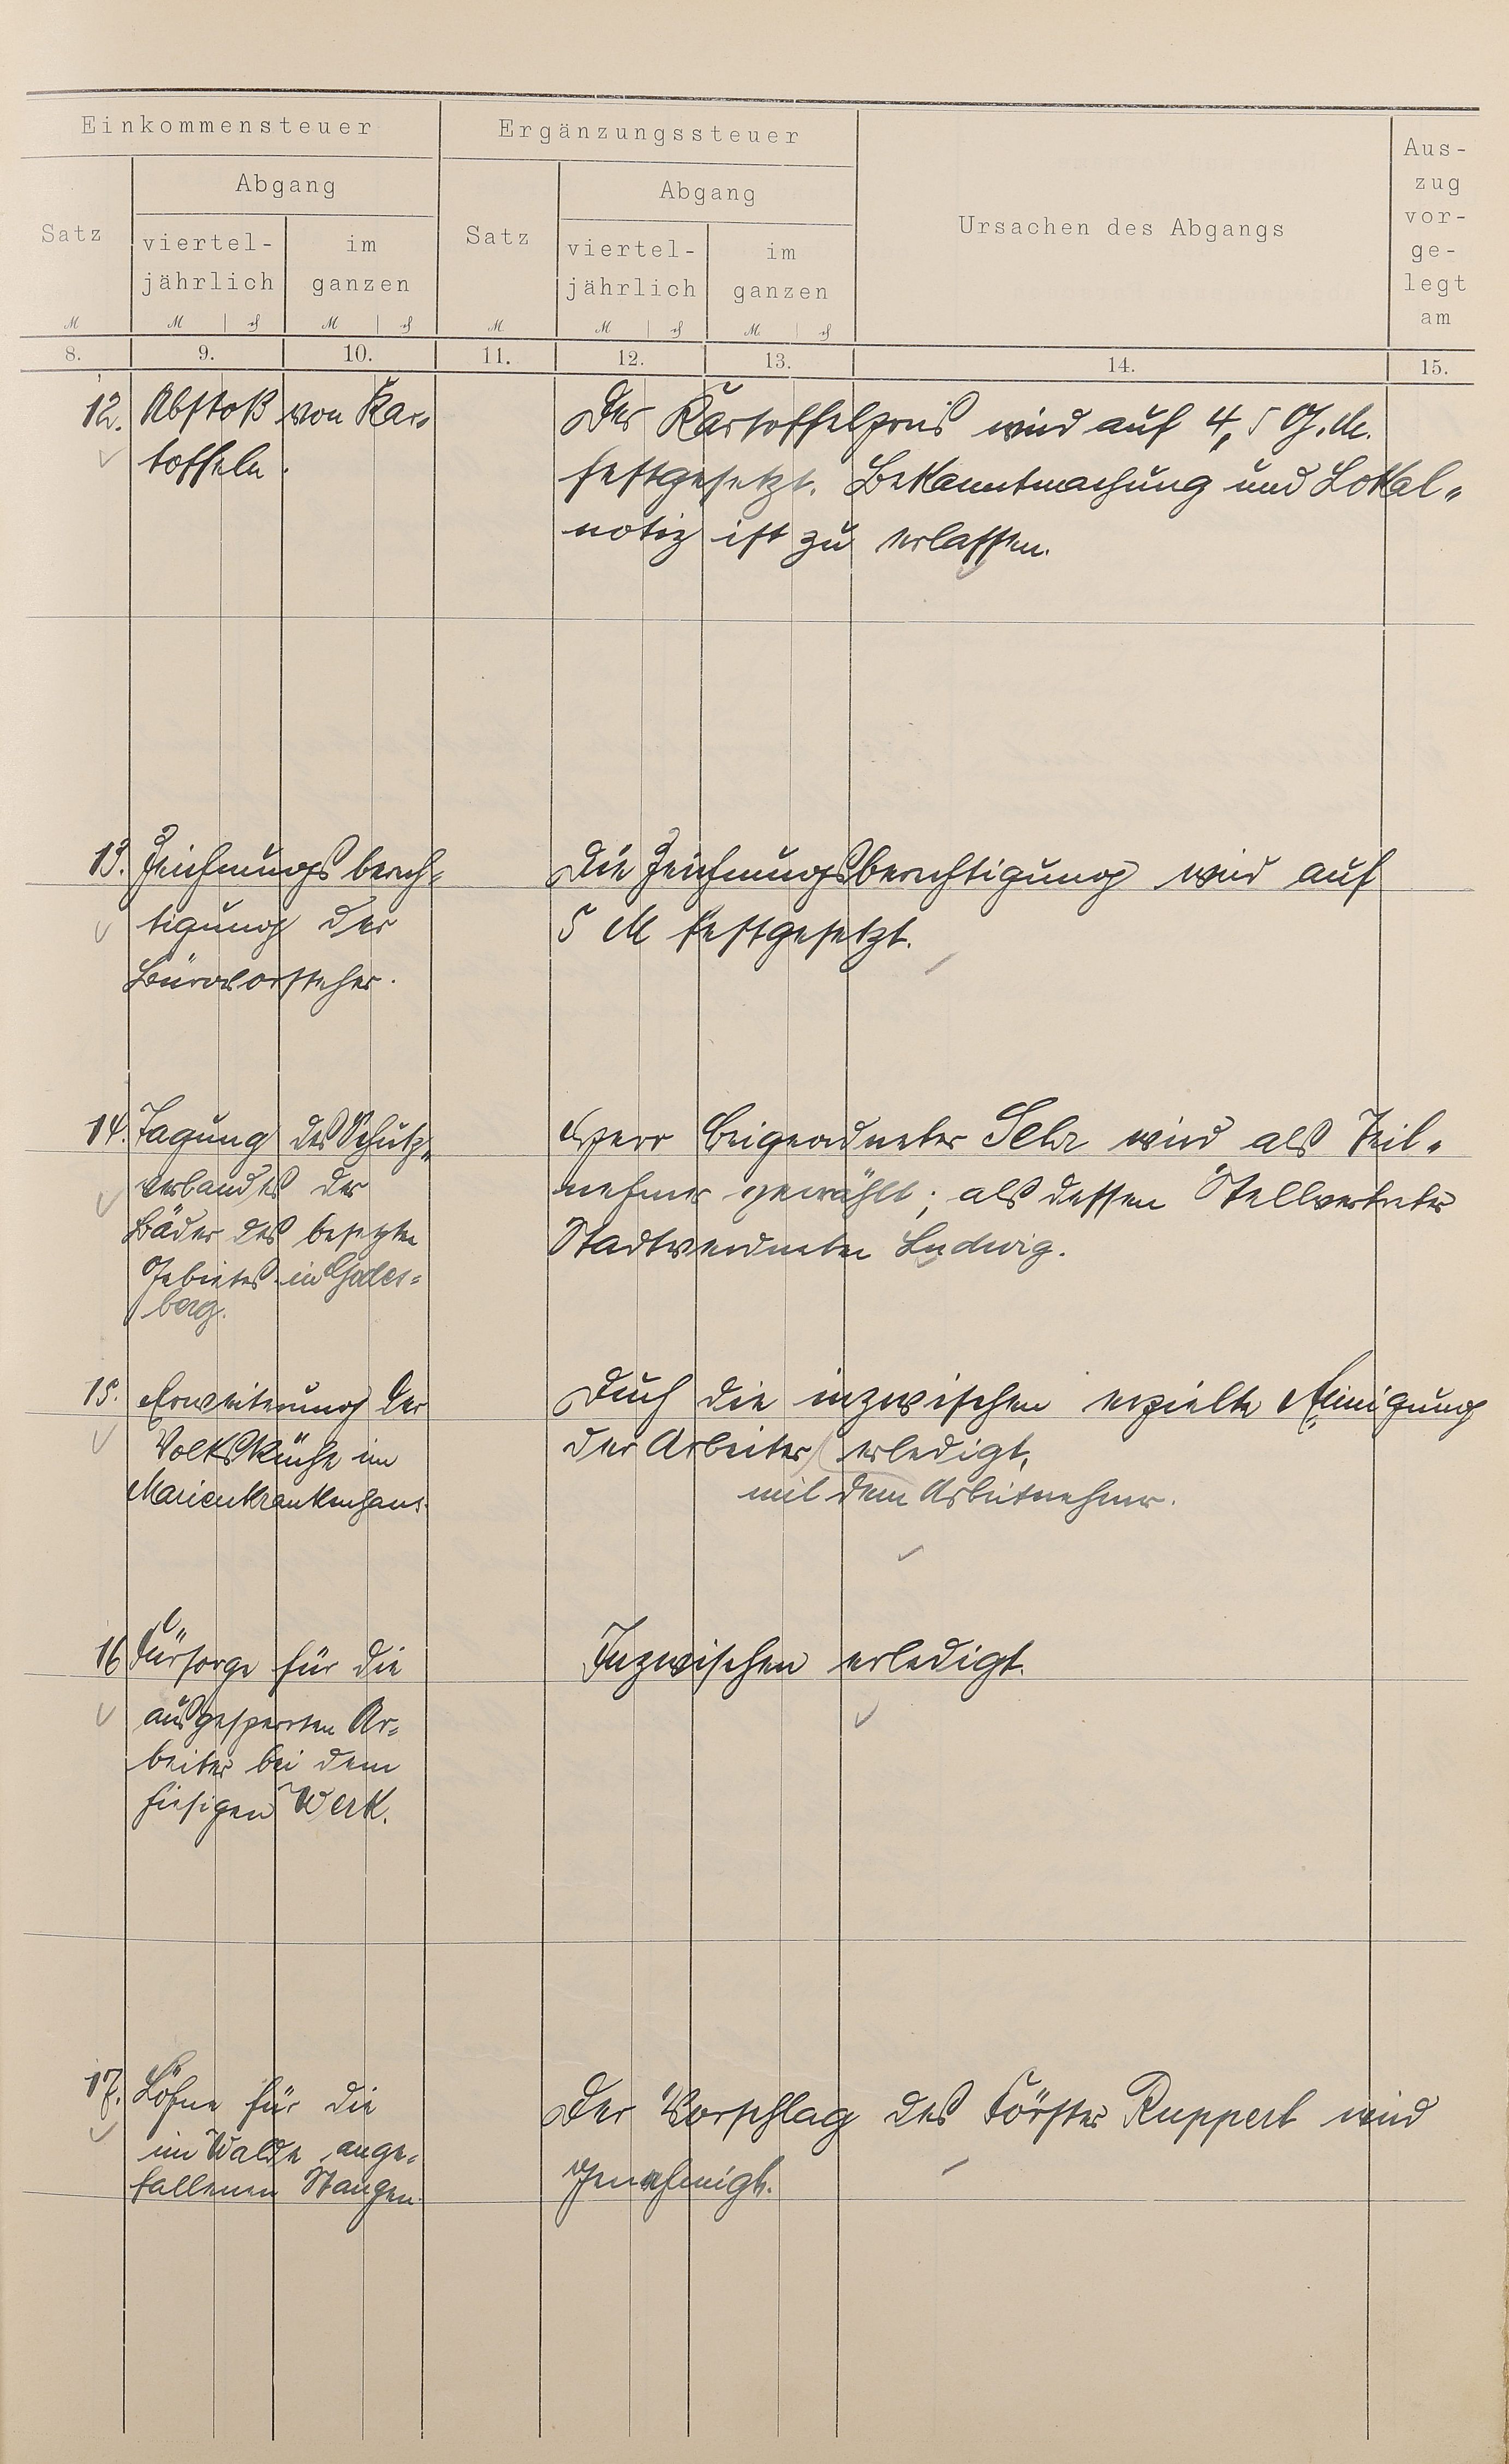 Einkommensteuer
Ergänzungssteuer
Ursachen des Abgangs
Aus-
zug
vor-
ge-
legt
am
Satz
Abgang
viertel-
jährlich
im
ganzen
Satz
Abgang
viertel-
jährlich
im
ganzen
M
M
M
M
M
M
8.
9.
10.
11.
12.
13.
14.
15.
12. Abstoß von Kar-
toffeln.
Der Kartoffelpreis wird auf 4,5 G.M.
festgesetzt. Bekanntmachung und Lokal-
notiz ist zu erlassen.
13. Zeichnungsberech-
tigung der
Bürovorsteher.
Die Zeichnungsberechtigung wird auf
5 M festgesetzt.
14. Tagung des Schutz-
verbandes der
Bäder des besetzten
Gebietes in Godes-
berg.
Herr Beigeordneter Sehr wird als Teil-
nehmer gewählt; als dessen Stellvertreter
Stadtverordneter Ludwig.
15. Erweiterung der
Volksküche im
Marienkrankenhaus.
Duch die inzwischen erzielte Einigung
der Arbeiter erledigt,
mit dem Arbeitnehmer.
16 Fürsorge für die
ausgesperrten Ar-
beiter bei dem
hiesigen Werk.
Inzwischen erledigt.
17. Löhne für die
im Walde ange-
fallenen Stangen.
Der Vorschlag des Förster Ruppert wird
genehmigt.